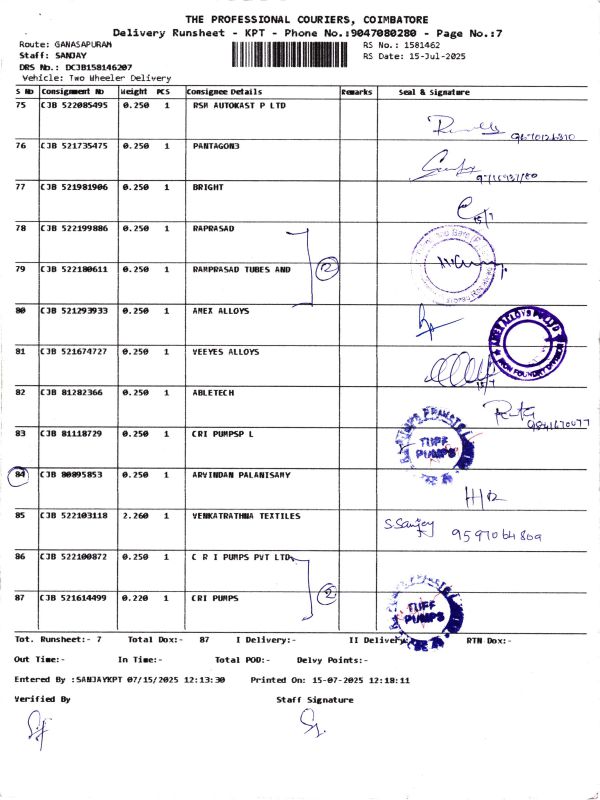 THE PROFESSIONAL COURIERS, COIMBATORE
Delivery Runsheet - KPT - Phone No.:9047080280 - Page No.:7
Route: GANASAPURAM RS No.: 1581462
Staff: SANJAY RS Date: 15-Jul-2025
DRS No.: DCJB158146207
Vehicle: Two Wheeler Delivery
S No Consignment No Weight PCS Consignee Details Remarks Seal & Signature
75 CJB 522085495 0.250 1 RSM AUTOKAST P LTD
76 CJB 521735475 0.250 1 PANTAGON3
77 CJB 521981906 0.250 1 BRIGHT
15/7
78 CJB 522199886 0.250 1 RAPRASAD
79 CJB 522180611 0.250 1 RAMPRASAD TUBES AND
80 CJB 521293933 0.250 1 AMEX ALLOYS
AMEX ALLOYS PVT LTD
IRON FOUNDRY DIVISION
81 CJB 521674727 0.250 1 VEEYES ALLOYS
15/7
82 CJB 81282366 0.250 1 ABLETECH
9841670077
83 CJB 81118729 0.250 1 CRI PUMPSP L
TUFF
PUMPS
84 CJB 80895853 0.250 1 ARVINDAN PALANISAMY
H/R
85 CJB 522103118 2.260 1 VENKATRATHNA TEXTILES S.Sanjay 9597064809
86 CJB 522100872 0.250 1 C R I PUMPS PVT LTD
2
87 CJB 521614499 0.220 1 CRI PUMPS
TUFF
PUMPS
Tot. Runsheet:- 7 Total Dox:- 87 I Delivery:- II Delivery:- RTN Dox:-
Out Time:- In Time:- Total POD:- Delvy Points:-
Entered By :SANJAYKPT 07/15/2025 12:13:30 Printed On: 15-07-2025 12:18:11
Verified By Staff Signature